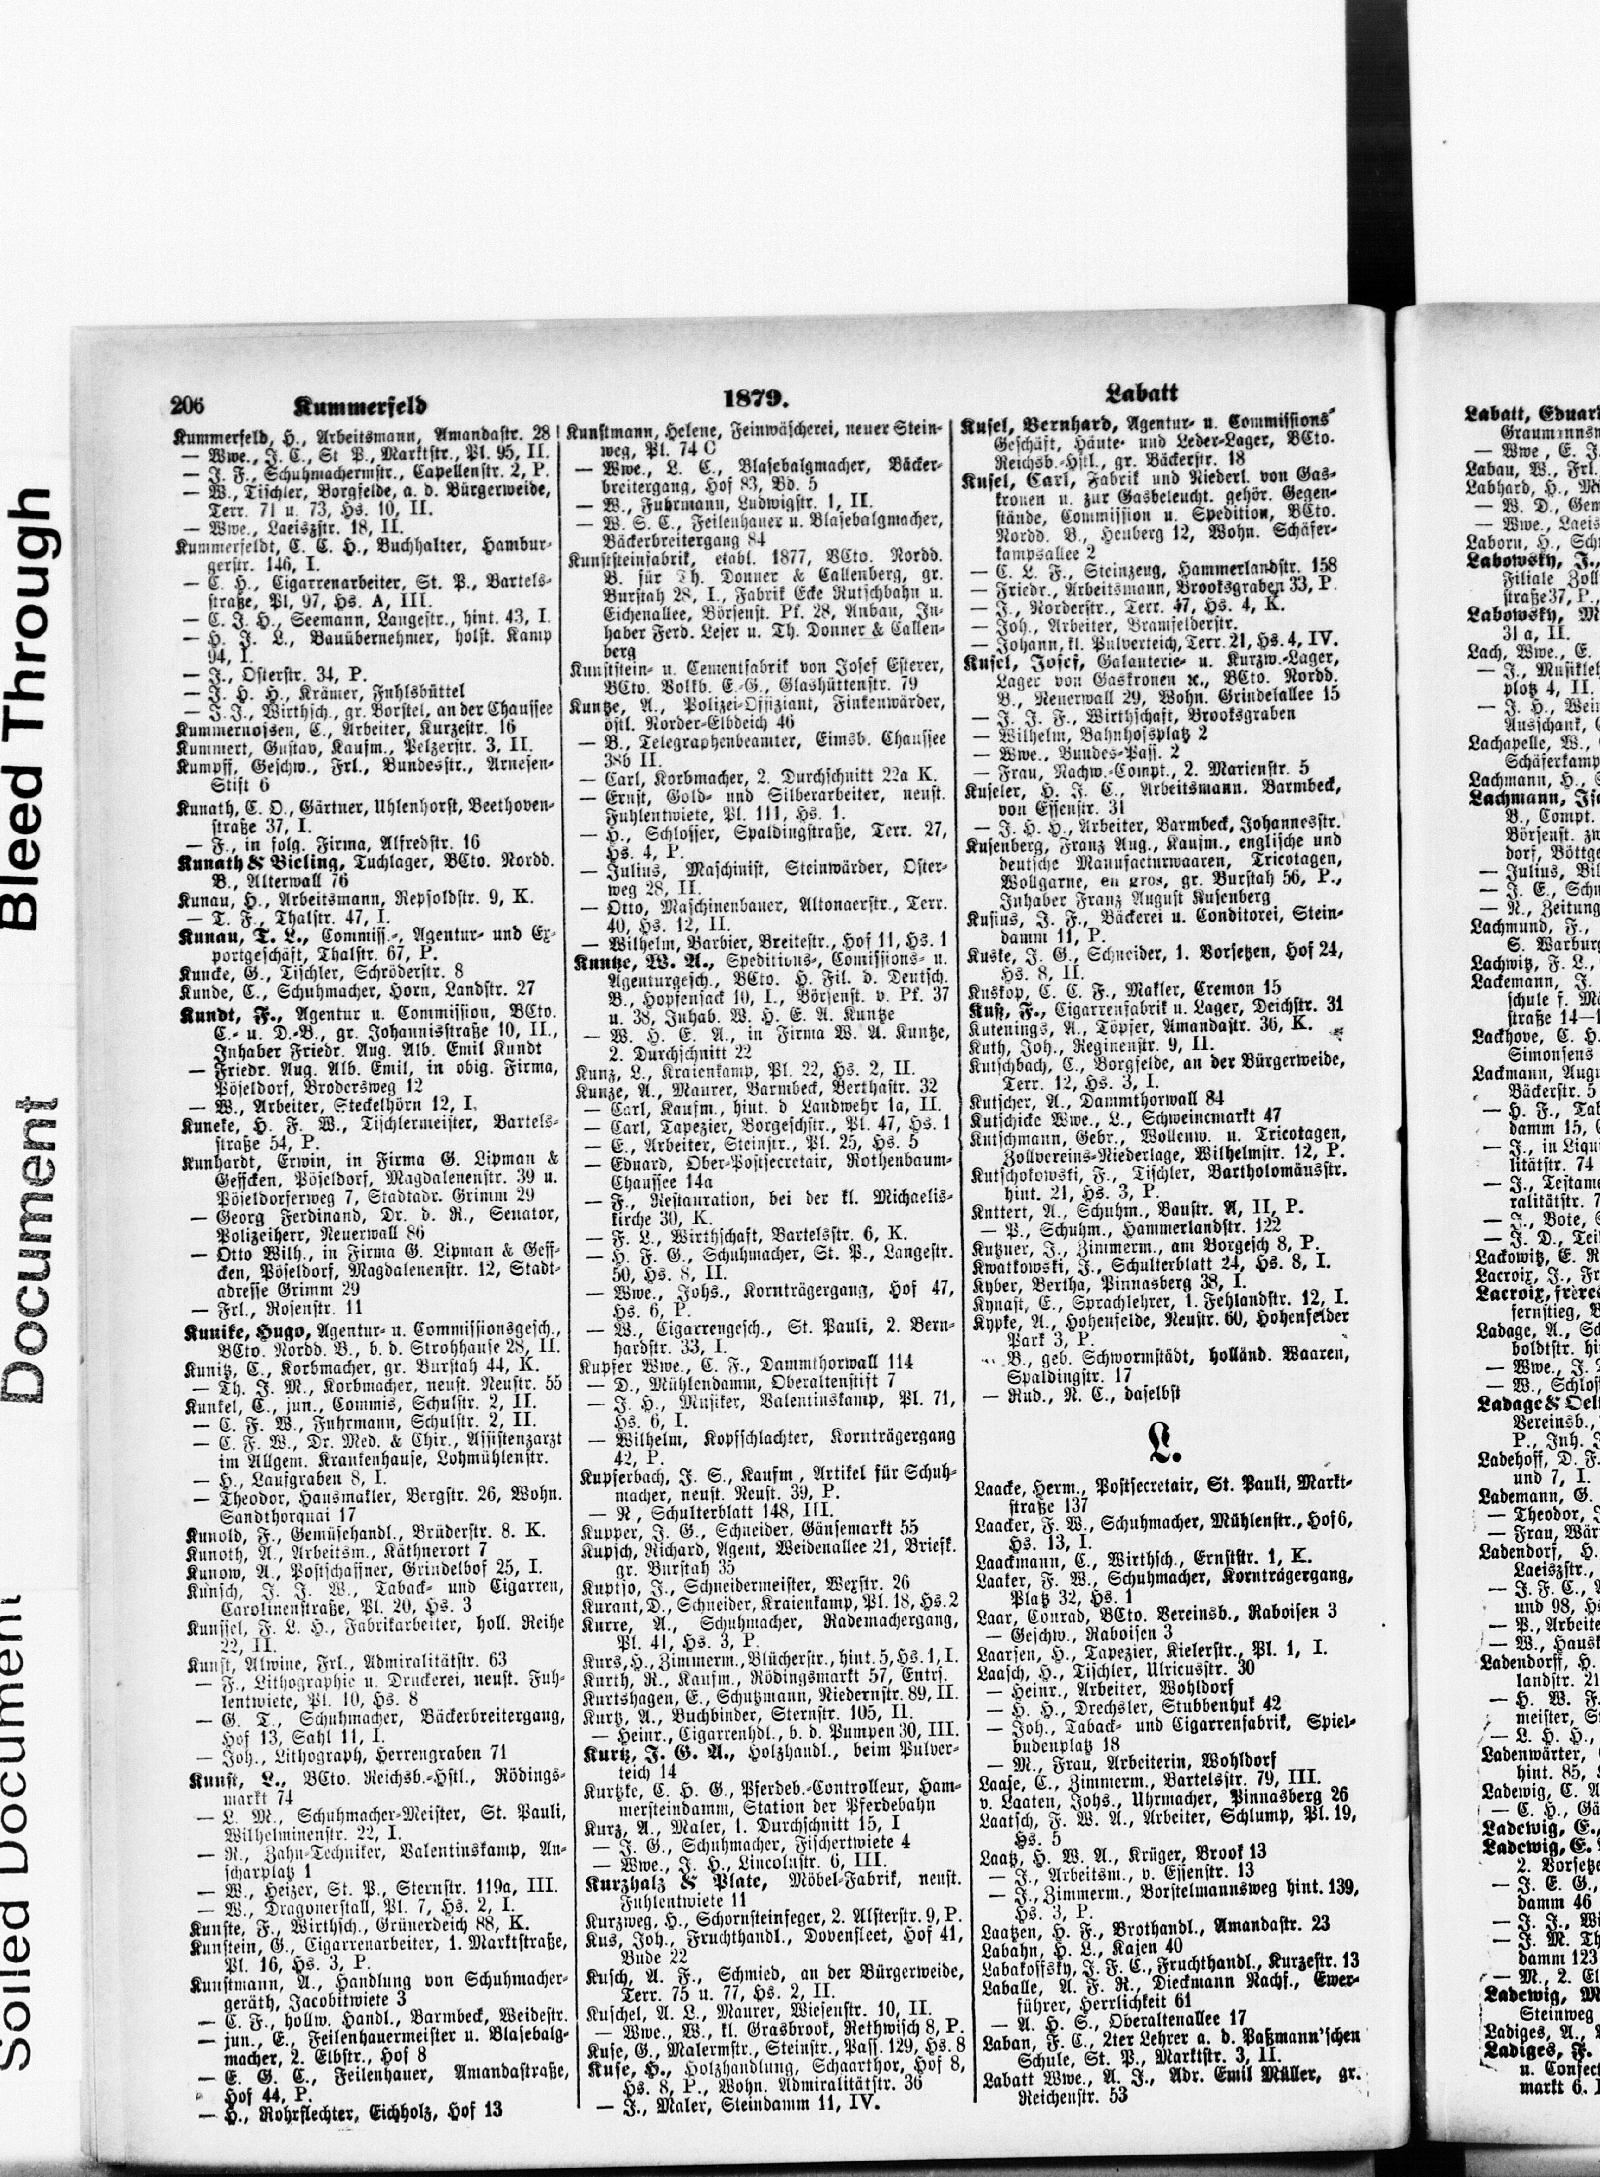 206 Kummerfeld 1879. Labatt
Kummerfeld, H., Arbeitsmann, Amandastr. 28
— Wwe., J. C., St P., Marktstr., Pl. 95, II.
— J. F., Schuhmachermstr., Capellenstr. 2, P.
— W., Tischler, Borgfelde, a. d. Bürgerweide,
Terr. 71 u. 73, Hs. 10, II.
— Wwe., Laeiszstr. 18, II.
Kummerfeldt, C. C. H., Buchhalter, Hambur-
gerstr. 146, I.
— C. H., Cigarrenarbeiter, St. P., Bartels-
straße, Pl. 97, Hs. A, III.
— C. J. H., Seemann, Langestr., hint. 43, I.
— H. J. L., Bauübernehmer, holst. Kamp
94, I.
— J., Osterstr. 34, P.
— J. H. H., Krämer, Fuhlsbüttel
— J. J., Wirthsch., gr. Borstel, an der Chaussee
Kummernossen, C., Arbeiter, Kurzestr. 16
Kummert, Gustav, Kaufm., Pelzerstr. 3, II.
Kumpff, Geschw., Frl., Bundesstr., Arnesen-
Stift 6
Kunath, C. O., Gärtner, Uhlenhorst, Beethoven-
straße 37, I.
— F., in folg. Firma, Alfredstr. 16
Kunath & Bieling, Tuchlager, BCto. Nordd.
B., Alterwall 76
Kunau, H., Arbeitsmann, Repsoldstr. 9, K.
— T. F., Thalstr. 47, I.
Kunau, T. L., Commiss.-, Agentur- und Ex-
portgeschäft, Thalstr. 67, P.
Kuncke, G., Tischler, Schröderstr. 8
Kunde, C., Schuhmacher, Horn, Landstr. 27
Kundt, F., Agentur u. Commission, BCto.
C.- u. D.-B., gr. Johannisstraße 10, II.,
Inhaber Friedr. Aug. Alb. Emil Kundt
— Friedr. Aug. Alb. Emil, in obig. Firma,
Pöseldorf, Brodersweg 12
— W., Arbeiter, Steckelhörn 12, I.
Kuneke, H. F. W., Tischlermeister, Bartels-
straße 54, P.
Kunhardt, Erwin, in Firma G. Lipman &
Geffcken, Pöseldorf, Magdalenenstr. 39 u.
Pöseldorferweg 7, Stadtadr. Grimm 29
— Georg Ferdinand, Dr. d. R., Senator,
Polizeiherr, Neuerwall 86
— Otto Wilh., in Firma G. Lipman & Geff-
cken, Pöseldorf, Magdalenenstr. 12, Stadt-
adresse Grimm 29
— Frl., Rosenstr. 11
Kunike, Hugo, Agentur- u. Commissionsgesch.,
BCto. Nordd. B., b. d. Strohhause 28, II.
Kunitz, C., Korbmacher, gr. Burstah 44, K.
— Th. J. M., Korbmacher, neust. Neustr. 55
Kunkel, C., jun., Commis, Schulstr. 2, II.
— C. F. W., Fuhrmann, Schulstr. 2, II.
— C. F. W., Dr. Med. & Chir., Assistenzarzt
im Allgem. Krankenhause, Lohmühlenstr.
— H., Laufgraben 8, I.
— Theodor, Hausmakler, Bergstr. 26, Wohn.
Sandthorquai 17
Kunold, F., Gemüsehandl., Brüderstr. 8. K.
Kunoth, A., Arbeitsm., Käthnerort 7
Kunow, A., Postschaffner, Grindelhof 25, I.
Kunsch, J. J. W., Taback- und Cigarren,
Carolinenstraße, Pl. 20, Hs. 3
Kunssel, F. L. H., Fabrikarbeiter, holl. Reihe
22, II.
Kunst, Alwine, Frl., Admiralitätstr. 63
— F., Lithographie u. Druckerei, neust. Fuh-
lentwiete, Pl. 10, Hs. 8
— G. T., Schuhmacher, Bäckerbreitergang,
Hof 13, Sahl 11, I.
— Joh., Lithograph, Herrengraben 71
Kunst, L., BCto. Reichsb.-Hstl., Rödings-
markt 74
— L. M., Schuhmacher-Meister, St. Pauli,
Wilhelminenstr. 22, I.
— R., Zahn-Techniker, Valentinskamp, An-
scharplatz 1
— W., Heizer, St. P., Sternstr. 119a, III.
— W., Dragonerstall, Pl. 7, Hs. 2, I.
Kunste, F., Wirthsch., Grünerdeich 88, K.
Kunstein, G., Cigarrenarbeiter, 1. Marktstraße,
Pl. 16, Hs. 3, P.
Kunstmann, A., Handlung von Schuhmacher-
geräth, Jacobitwiete 3
— C. F., hollw. Handl., Barmbeck, Weidestr.
— jun., E., Feilenhauermeister u. Blasebalg-
macher, 2. Elbstr., Hof 8
— E. G. C., Feilenhauer, Amandastraße,
Hof 44, P.
— H., Rohrflechter, Eichholz, Hof 13
Kunstmann, Helene, Feinwäscherei, neuer Stein-
weg, Pl. 74 C
— Wwe., L. C., Blasebalgmacher, Bäcker-
breitergang, Hof 83, Bd. 5
— W., Fuhrmann, Ludwigstr. 1, II.
— W. S. C., Feilenhauer u. Blasebalgmacher,
Bäckerbreitergang 84
Kunststeinfabrik, etabl. 1877, BCto. Nordd.
B. für Th. Donner & Callenberg, gr.
Burstah 28, I., Fabrik Ecke Rutschbahn u.
Eichenallee, Börsenst. Pf. 28, Anbau, In-
haber Ferd. Leser u. Th. Donner & Callen-
berg
Kunststein- u. Cementfabrik von Josef Esterer,
BCto. Volkb. E.-G., Glashüttenstr. 79
Kuntze, A., Polizei-Offiziant, Finkenwärder,
östl. Norder-Elbdeich 46
— B., Telegraphenbeamter, Eimsb. Chaussee
38b II.
— Carl, Korbmacher, 2. Durchschnitt 22a K.
— Ernst, Gold- und Silberarbeiter, neust.
Fuhlentwiete, Pl. 111, Hs. 1.
— H., Schlosser, Spaldingstraße, Terr. 27,
Hs. 4, P.
— Julius, Maschinist, Steinwärder, Oster-
weg 28, II.
— Otto, Maschinenbauer, Altonaerstr., Terr.
40, Hs. 12, II.
— Wilhelm, Barbier, Breitestr., Hof 11, Hs. 1
Kuntze, W. A., Speditions-, Comissions- u.
Agenturgesch., BCto. H. Fil. d. Deutsch.
B., Hopfensack 10, I., Börsenst. v. Pf. 37
u. 38, Inhab. W. H. E. A. Kuntze
— W. H. E. A., in Firma W. A. Kuntze,
2. Durchschnitt 22
Kunz, L., Kraienkamp, Pl. 22, Hs. 2, II.
Kunze, A., Maurer, Barmbeck, Berthastr. 32
— Carl, Kaufm., hint. d Landwehr 1a, II.
— Carl, Tapezier, Borgeschstr., Pl. 47, Hs. 1
— E., Arbeiter, Steinstr., Pl. 25, Hs. 5
— Eduard, Ober-Postsecretair, Rothenbaum-
Chaussee 14a
— F., Restauration, bei der kl. Michaelis-
kirche 30, K.
— F. L., Wirthschaft, Bartelsstr. 6, K.
— H. F. G., Schuhmacher, St. P., Langestr.
50, Hs. 8, II.
— Wwe., Johs., Kornträgergang, Hof 47,
Hs. 6, P.
— W., Cigarrengesch., St. Pauli, 2. Bern-
hardstr. 33, I.
Kupfer Wwe., C. F., Dammthorwall 114
— D., Mühlendamm, Oberaltenstift 7
— J. H., Musiker, Valentinskamp, Pl. 71,
Hs. 6, I.
— Wilhelm, Kopfschlachter, Kornträgergang
42, P.
Kupferbach, J. S., Kaufm, Artikel für Schuh-
macher, neust. Neust. 39, P.
— R, Schulterblatt 148, III.
Kupper, J. G., Schneider, Gänsemarkt 55
Kupsch, Richard, Agent, Weidenallee 21, Briefk.
gr. Burstah 35
Kuptso, J., Schneidermeister, Wexstr. 26
Kurant, D., Schneider, Kraienkamp, Pl. 18, Hs. 2
Kurre, A., Schuhmacher, Rademachergang,
Pl. 41, Hs. 3, P.
Kurs, H., Zimmerm., Blücherstr., hint. 5, Hs. 1, I.
Kurth, R., Kaufm., Rödingsmarkt 57, Entrs.
Kurtshagen, E., Schutzmann, Niedernstr. 89, II.
Kurtz, A., Buchbinder, Sternstr. 105, II.
— Heinr., Cigarrenhdl., b. d. Pumpen 30, III.
Kurtz, J. G. A., Holzhandl., beim Pulver-
teich 14
Kurtzke, C. H. G., Pferdeb.-Controlleur, Ham-
mersteindamm, Station der Pferdebahn
Kurz, A., Maler, 1. Durchschnitt 15, I
— J. G., Schuhmacher, Fischertwiete 4
— Wwe., J. H., Lincolnstr. 6, III.
Kurzhalz & Plate, Möbel-Fabrik, neust.
Fuhlentwiete 11
Kurzweg, H., Schornsteinfeger, 2. Alsterstr. 9, P.
Kus, Joh., Fruchthandl., Dovenfleet, Hof 41,
Bude 22
Kusch, A. F., Schmied, an der Bürgerweide,
Terr. 75 u. 77, Hs. 2, II.
Kuschel, A. L., Maurer, Wiesenstr. 10, II.
— Wwe., W., kl. Grasbrook, Rethwisch 8, P.
Kuse, G., Malermstr., Steinstr., Pass. 129, Hs. 8
Kuse, H., Holzhandlung, Schaarthor, Hof 8,
Hs. 8, P., Wohn. Admiralitätstr. 36
— J., Maler, Steindamm 11, IV.
Kusel, Bernhard, Agentur- u. Commissions-
Geschäft, Häute- und Leder-Lager, BCto.
Reichsb.-Hstl., gr. Bäckerstr. 18
Kusel, Carl, Fabrik und Niederl. von Gas-
kronen u. zur Gasbeleucht. gehör. Gegen-
stände, Commission u. Spedition, BCto.
Nordd. B., Heuberg 12, Wohn. Schäfer-
kampsallee 2
— C. L. F., Steinzeug, Hammerlandstr. 158
— Friedr., Arbeitsmann, Brooksgraben 33, P.
— J., Norderstr., Terr. 47, Hs. 4, K.
— Joh., Arbeiter, Bramfelderstr.
— Johann, kl. Pulverteich, Terr. 21, Hs. 4, IV.
Kusel, Josef, Galanterie- u. Kurzw.-Lager,
Lager von Gaskronen ꝛc., BCto. Nordd.
B., Neuerwall 29, Wohn. Grindelallee 15
— J. J. F., Wirthschaft, Brooksgraben
— Wilhelm, Bahnhofsplatz 2
— Wwe., Bundes-Pass. 2
— Frau, Nachw.-Compt., 2. Marienstr. 5
Kuseler, H. J. C., Arbeitsmann. Barmbeck,
von Essenstr. 31
— J. H. H., Arbeiter, Barmbeck, Johannesstr.
Kusenberg, Franz Aug., Kaufm., englische und
deutsche Manufacturwaaren, Tricotagen,
Wollgarne, en gros, gr. Burstah 56, P.,
Inhaber Franz August Kusenberg
Kusius, J. F., Bäckerei u. Conditorei, Stein-
damm 11, P.
Kuske, J. G., Schneider, 1. Vorsetzen, Hof 24,
Hs. 8, II.
Kuskop, C. C. F., Makler, Cremon 15
Kuß, F., Cigarrenfabrik u. Lager, Deichstr. 31
Kutenings, A., Töpfer, Amandastr. 36, K.
Kuth, Joh., Reginenstr. 9, II.
Kutschbach, C., Borgfelde, an der Bürgerweide,
Terr. 12, Hs. 3, I.
Kutscher, A., Dammthorwall 84
Kutschicke Wwe., L., Schweinemarkt 47
Kutschmann, Gebr., Wollenw. u. Tricotagen,
Zollvereins-Niederlage, Wilhelmstr. 12, P.
Kutschokowski, F., Tischler, Bartholomäusstr.
hint. 21, Hs. 3, P.
Kuttert, A., Schuhm., Baustr. A, II, P.
— P., Schuhm., Hammerlandstr. 122
Kutzner, J., Zimmerm., am Borgesch 8, P.
Kwatkowski, J., Schulterblatt 24, Hs. 8, I.
Kyber, Bertha, Pinnasberg 38, I.
Kynast, E., Sprachlehrer, 1. Fehlandstr. 12, I.
Kypke, A., Hohenfelde, Neustr. 60, Hohenfelder
Park 3, P.
— B., geb. Schwormstädt, holländ. Waaren,
Spaldingstr. 17
— Rud., N. C., daselbst
L.
Laacke, Herm., Postsecretair, St. Pauli, Markt-
straße 137
Laacker, F. W., Schuhmacher, Mühlenstr., Hof 6,
Hs. 13, I.
Laackmann, C., Wirthsch., Ernststr. 1, K.
Laaker, F. W., Schuhmacher, Kornträgergang,
Platz 32, Hs. 1
Laar, Conrad, BCto. Vereinsb., Raboisen 3
— Geschw., Raboisen 3
Laarsen, H., Tapezier, Kielerstr., Pl. 1, I.
Laasch, H., Tischler, Ulricusstr. 30
— Heinr., Arbeiter, Wohldorf
— H. H., Drechsler, Stubbenhuk 42
— Joh., Taback- und Cigarrenfabrik, Spiel-
budenplatz 18
— M., Frau, Arbeiterin, Wohldorf
Laase, C., Zimmerm., Bartelsstr. 79, III.
v. Laaten, Johs., Uhrmacher, Pinnasberg 26
Laatsch, F. W. A., Arbeiter, Schlump, Pl. 19,
Hs. 5
Laatz, H. W. A., Krüger, Brook 13
— J., Arbeitsm., v. Essenstr. 13
— J., Zimmerm., Borstelmannsweg hint. 139,
Hs. 3, P.
Laatzen, H. F., Brothandl., Amandastr. 23
Labahn, H. L., Kajen 40
Labakoffsky, J. F. C., Fruchthandl., Kurzestr. 13
Laballe, A. F. R., Dieckmann Nachf., Ewer-
führer, Herrlichkeit 61
— A. H. S., Oberaltenallee 17
Laban, F. C., 2ter Lehrer a. d. Paßmann'schen
Schule, St. P., Marktstr. 3, II.
Labatt Wwe., A. J., Adr. Emil Müller, gr.
Reichenstr. 53
Labatt, Eduard
— Wwe, E. J.
Labau, W., Frl.
Labhard, H.,
— W. D.,
— Wwe.,
Laborn, H.,
Labowsky, J.,
Filiale
straße 37, P.,
Labowsky,
31a, II.
Lach, Wwe., E.
— J.,
platz 4, II.
— J. H.,
Ausschank,
Lachapelle, W.,
Lachmann, H.,
Lachmann,
B., Compt.
Börsenst.
— Julius,
— J. E.,
— R., Zeitung
Lachmund, F.,
S. Warburg
Lachwitz, F. L.,
Lackemann, J.
schule f.
straße 14—
Lackhove, C. H.
Simonsens
Lackmann,
Bäckerstr. 5
— H. F.,
damm 15,
— J., in
litätstr. 74
— J.,
ralitätstr.
— J., Bote,
— J. D.,
Lackowitz, E. R
Lacroix, J.,
Lacroix, frères
fernstieg,
Ladage, A.,
boldtstr.
— Wwe., J.
— W.,
Ladage &
Vereinsb.,
P., Inh.
Ladehoff, D. F.
und 7, I.
Lademann, G.
— Theodor,
— Frau,
Ladendorf, H.
Laeiszstr.,
— J. F. C.,
und 98,
— P.,
— W.,
Ladendorff, H.
landstr. 21
— H. W. F.
meister,
— L. H. H.,
Ladenwärter,
hint. 85,
Ladewig, C. A
— C. H.,
Ladewig, E.,
Ladewig, E.
— J. E. G.,
damm 46
— J. J.,
— J. M. Th
damm 123
— M., 2.
Ladewig,
Steinweg
Ladiges, A.,
Ladiges, F.
markt 6.
Bleed Through
Document
Soiled Document